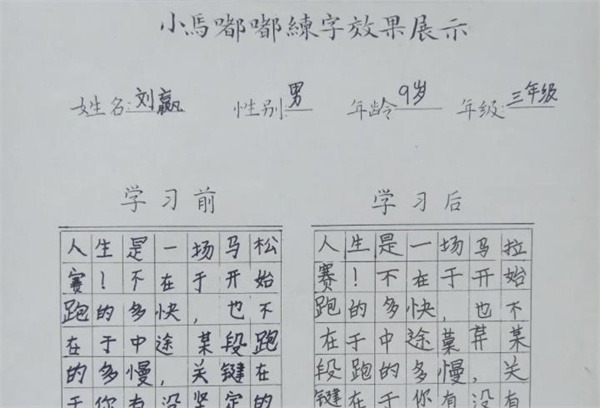 小馬嘟嘟練字效果展示
姓名:刘赢 性别:男 年龄 9岁 年级:三年级
学习前
人生是一场马松
赛!不在于开始
跑的多快,也不
在于中途某段跑
的多慢,关键在
于你有没坚定的
学习后
人生是一场马拉
赛!不在于开始
跑的多快,也不
在于中途菓芹某
段跑的多慢,关
键在于你有没有